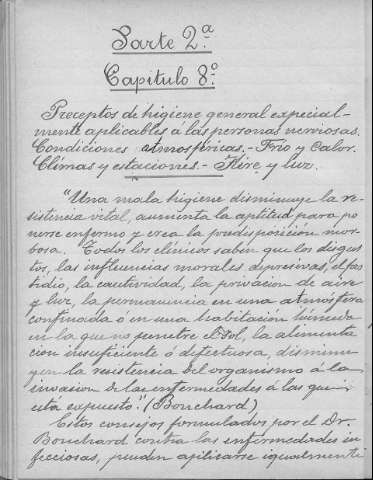 Parte 2.a
Capitulo 8.o
Preceptos de higiene general especial-
mente aplicables á las personas nerviosas.
Condiciones atmosféricas.- Frio y Calor.
Climas y estaciones.- Aire y luz.
"Una mala higiene disminuye la re-
sistencia vital, aumenta la aptitud para po
nerse enfermo y crea la predisposición mor-
bosa. Todos los clínicos saben que los disgus
tos, las influencias morales depresivas, el fas
tidio, la cautividad, la privacion de aire
y luz, la permanencia en una atmósfera
confinada ó en una habitación húmeda
en la que no penetre el sol, la alimenta
cion insuficiente ó defectuosa, disminu
yen la resistencia del organismo á la
invasion de las enfermedades á las que
está expuesto." (Bouchard)
Estos consejos formulados por el Dr.
Bouchard contra las enfermedades in
fecciosas, pueden aplicarse igualmente